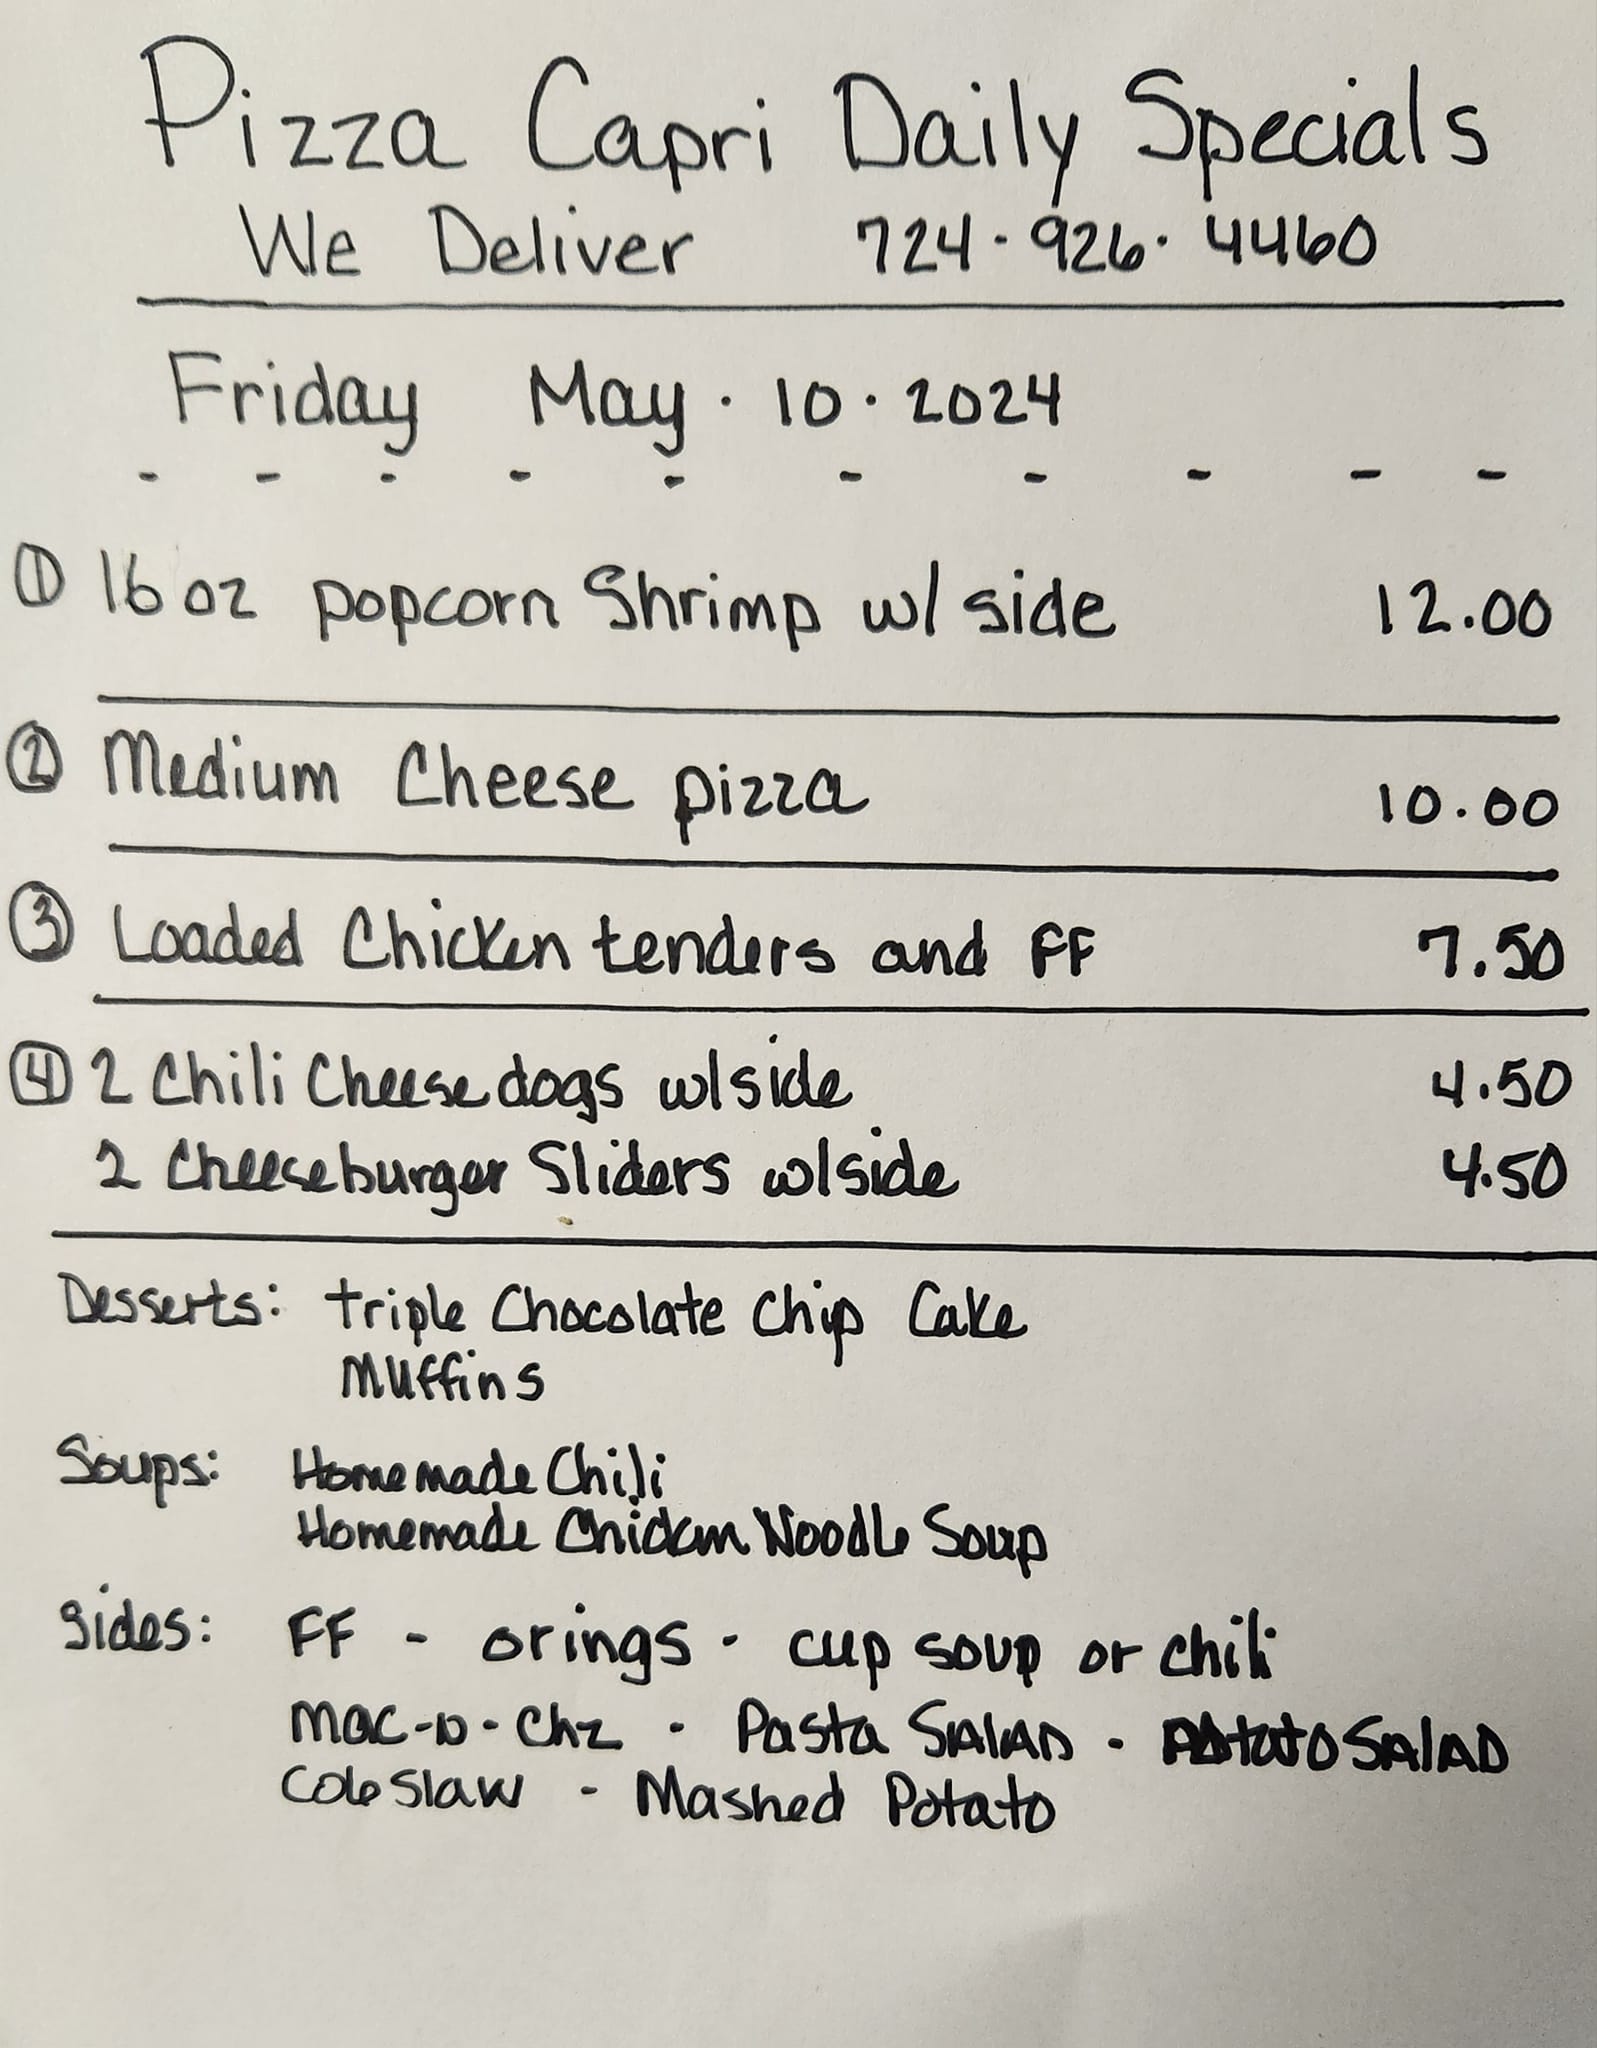 Pizza Capri Daily Specials
We Deliver 724-926-4460
Friday May. 10. 2024
- - - - - - - - - -
① 16 oz popcorn Shrimp w/ side 12.00
② Medium Cheese pizza 10.00
③ Loaded Chicken tenders and FF 7.50
④ 2 Chili Cheese dogs w/side 4.50
2 Cheeseburger Sliders w/side 4.50
Desserts: triple Chocolate Chip Cake
Muffins
Soups: Homemade Chili
Homemade Chicken Noodle Soup
Sides: FF - orings - cup soup or chili
Mac-n-Chz - Pasta SALAD - Potato SALAD
Cole Slaw - Mashed Potato